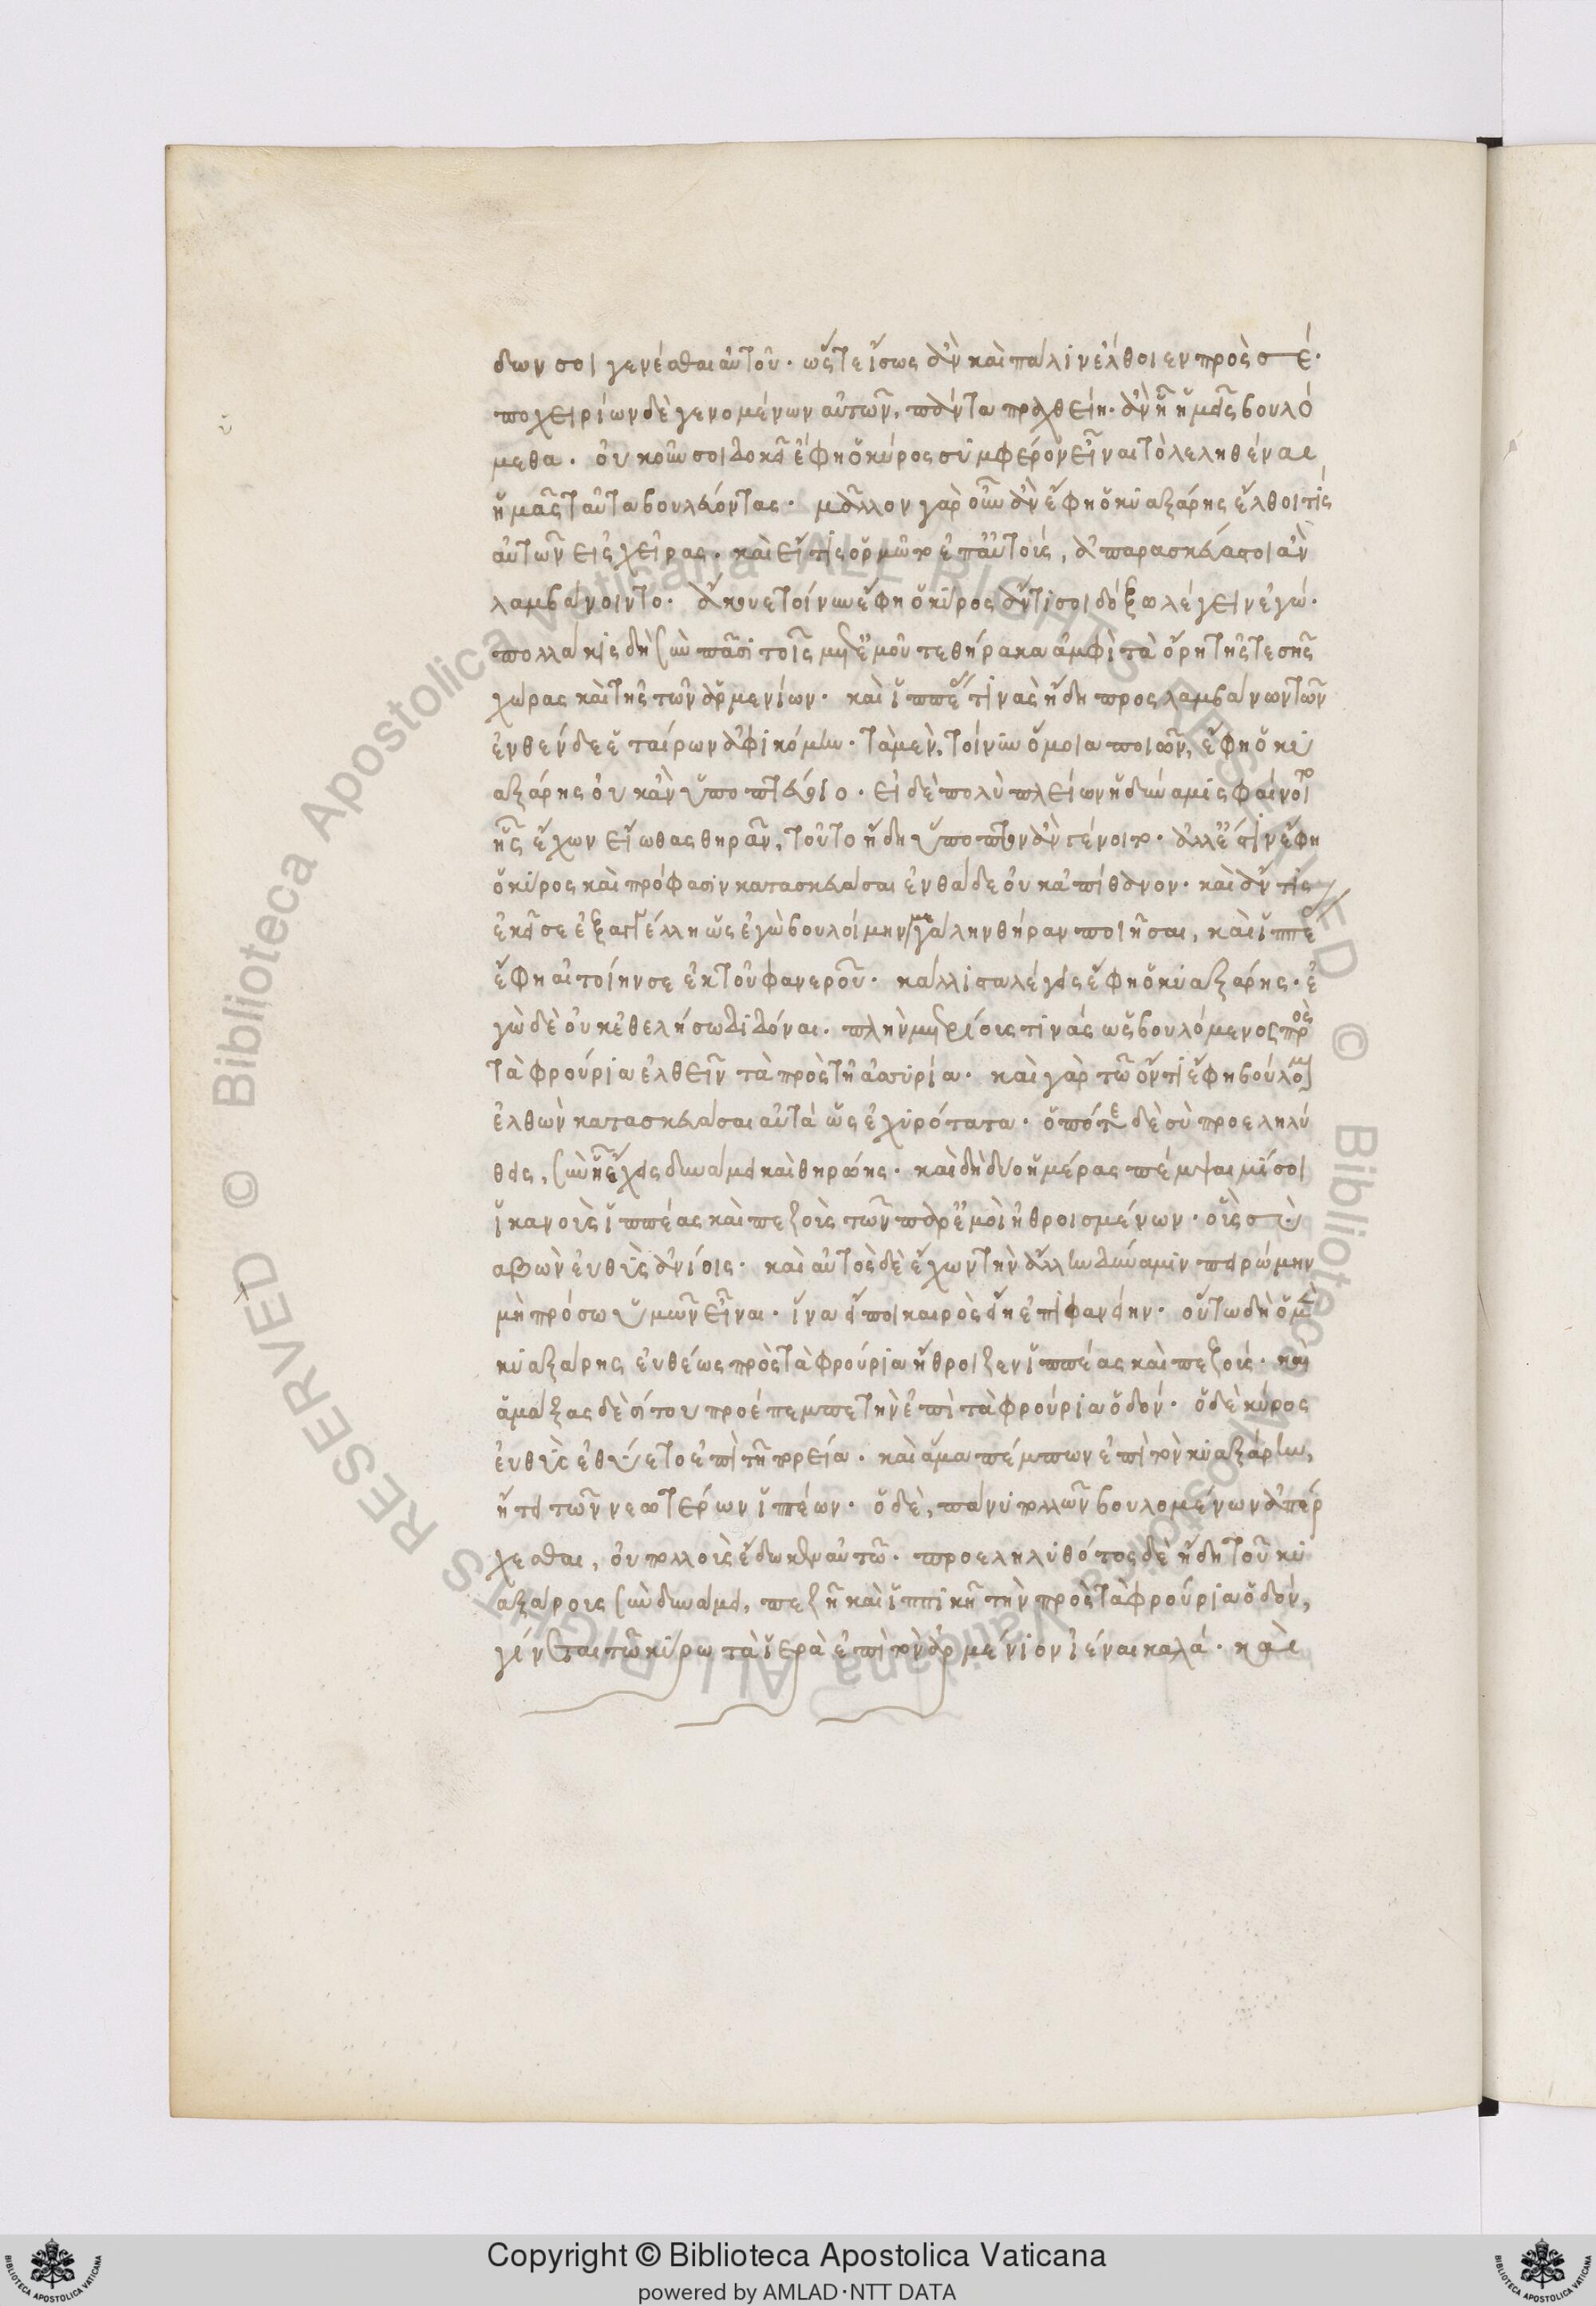 δων σοι γενέσθαι αὐτοῦ. ὥςτε ἴσως ἂν καὶ πάλιν ἔλθοιεν πρὸς σέ.
ποχειρίων δὲ γενομένων αὐτῶν, πάντα πραχθείη. ἂν ἢ ἡμᾶς βουλό
μεθα. οὐκοῦν σοι δοκεῖ ἔφη ὁ κύρος σύμφερον εἶναι τὸ λεληθέναι
ἡμᾶς ταῦτα βουλεύοντας. μᾶλλον γὰρ οὖν ἂν ἔφη ὁ κυαξάρης ἔλθοι τίς
αὐτῶν εἰς χεῖρας. καὶ εἴ τις ὁρμῶτο ἐπ' αὐτοὺς, ἀπαράσκευαστοι ἂν
λαμβάνοιντο. ἄκουε τοίνυν ἔφη ὁ κύρος ἄν τί σοι δόξω λέγειν ἐγώ.
πολλάκις δὴ σὺν πᾶσι τοῖς μετ' ἐμοῦ τεθήρακα ἀμφὶ τὰ ὄρη τῆς τε σῆς
χώρας καὶ τῆς τῶν ἀρμενίων. καὶ ἱππέας τινὰς ἤδη προςλαμβάνων τῶν
ἐνθένδε ἑταίρων ἀφικόμην. τὰ μὲν, τοίνυν ὅμοια ποιῶν, ἔφη ὁ κυ
αξάρης οὐκ ἂν ὑποπτεύοιο. εἰ δὲ πολὺ πλείων ἡ δύναμις φαίνοιτο
ἧς ἔχων εἴωθας θηρᾶν, τοῦτο ἤδη ὕποπτον ἂν γένοιτο. ἀλλ' ἔστιν ἔφη
ὁ κύρος καὶ πρόφασιν κατασκευάσαι ἐνθάδε οὐκ ἀπίθανον. καὶ ἄν τις
ἐκεῖσε ἐξαγγέλλη ὡς ἐγὼ βουλοίμην μεγάλην θήραν ποιῆσαι, καὶ ἱππέας
ἔφη αἰτοίην σε ἐκ τοῦ φανεροῦ. κάλλιστα λέγεις ἔφη ὁ κυαξάρης. ἐ
γὼ δὲ οὐκ ἐθελήσω διδόναι. πλὴν μετρίους τινάς ὡς βουλόμενος πρὸς
τὰ φρούρια ἐλθεῖν τὰ πρὸς τῆ ἀσυρία. καὶ γὰρ τῶ ὄντι ἔφη βούλομαι
ἐλθὼν κατασκευάσαι αὐτὰ ὡς ἐχυρότατα. ὁπότε δὲ σὺ προεληλύ
θεις, σὺν ἧ ἔχεις δυνάμει καὶ θηρώης. καὶ δὴ δύο ἡμέρας πέμψαιμί σοι
ἱκανοὺς ἱππέας καὶ πεζοὺς τῶν παρ' ἐμοὶ ἠθροισμένων. οὓς σὺ
λαβὼν εὐθὺς ἂν ἴοις. καὶ αὐτὸς δὲ ἔχων τὴν ἄλλην δύναμιν πειρώμην
μὴ πρόσω ὑμῶν εἶναι. ἵνα εἴ ποι καιρὸς εἴη ἐπιφανείην. οὕτω δὴ ὁ μὲν
κυαξάρης εὐθέως πρὸς τὰ φρούρια ἤθροιζεν ἱππέας καὶ πεζούς. καὶ
ἁμάξας δὲ σίτου προέπεμπε τὴν ἐπὶ τὰ φρούρια ὁδόν. ὁ δὲ κύρος
εὐθὺς ἐθύετο ἐπὶ τῆ πορεία. καὶ ἅμα πέμπων ἐπὶ τὸν κυαξάρην,
ἤτει τῶν νεωτέρων ἱππέων. ὁ δὲ, πάνυ πολλῶν βουλομένων ἀπέρ
χεσθαι, οὐ πολλοὺς ἔδωκεν αὐτῶ. προεληλυθότος δὲ ἤδη τοῦ κυ
αξάρους σὺν δυνάμει, πεζῆ καὶ ἱππικῆ τὴν πρὸς τὰ φρούρια ὁδόν,
γίνεται τῶ κύρω τὰ ἱερὰ ἐπὶ τὸν ἀρμένιον ἰέναι καλά. καὶ
Copyright © Biblioteca Apostolica Vaticana
powered by AMLAD·NTT DATA